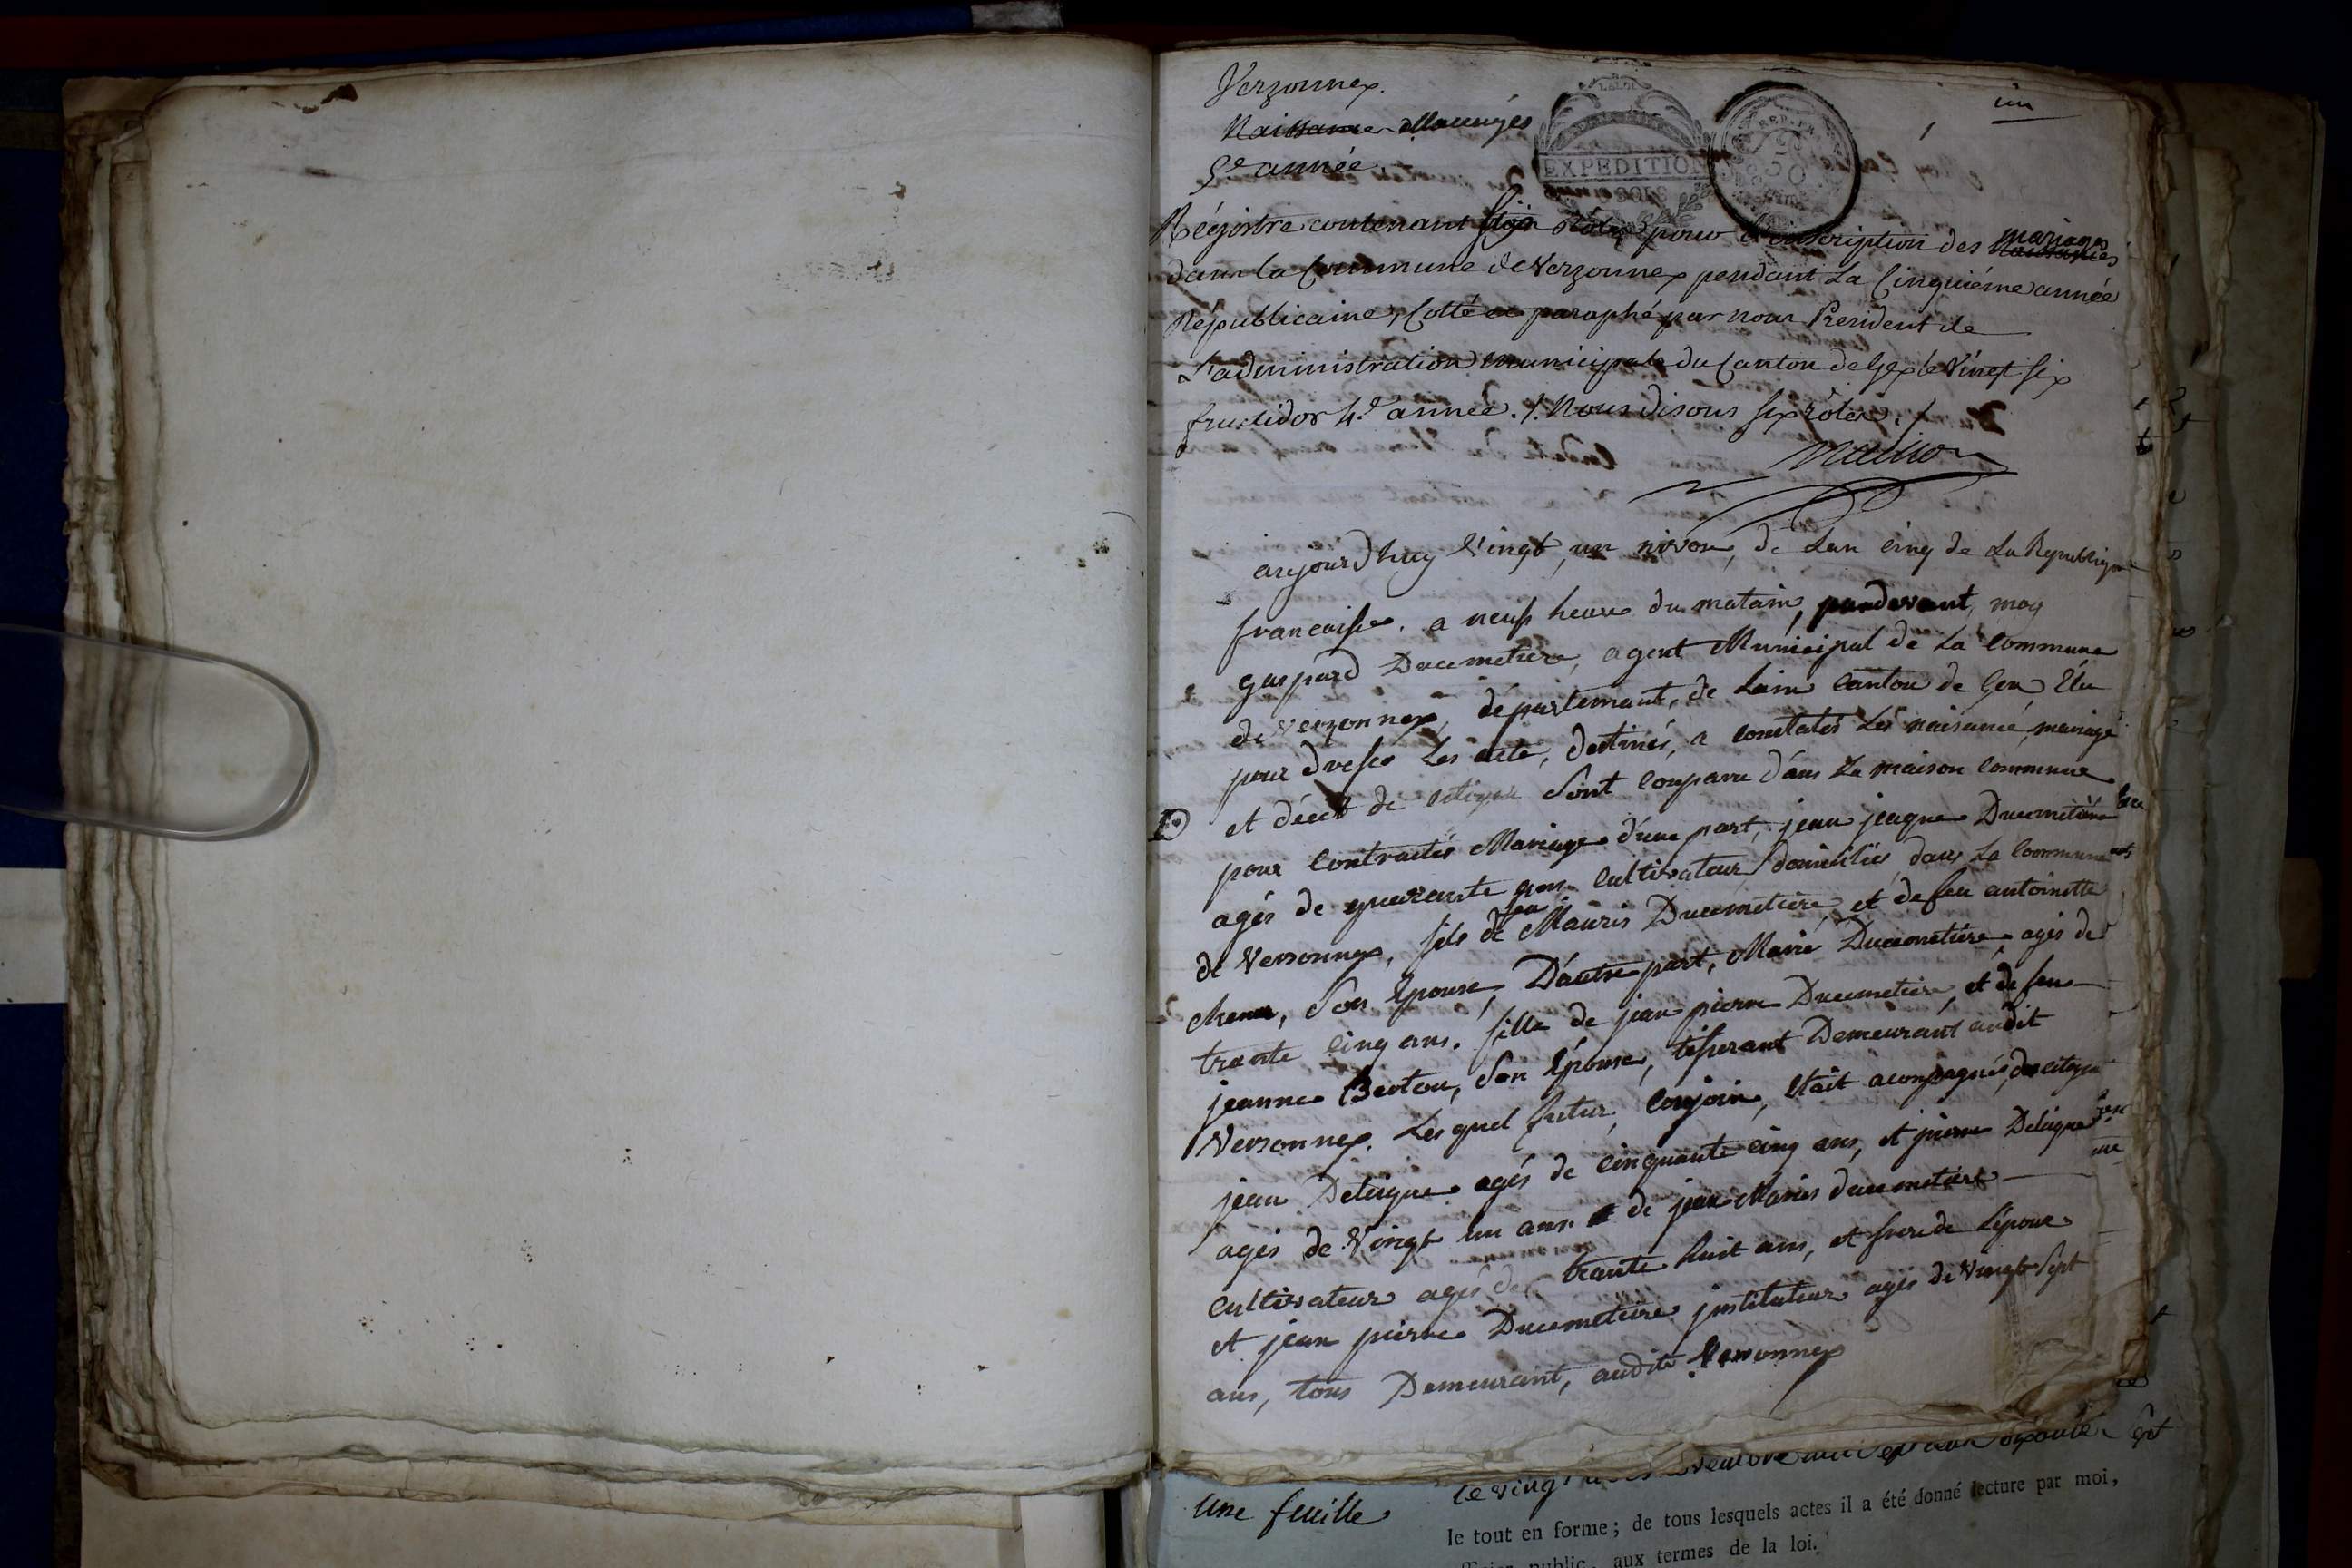 Verzonnex.
Naissance Mariages
5e année
un
LA LOI
EXPEDITION
REP. FR.
50
Régistre contenant six Rôles pour l'inscription des mariages naissances
dans la Commune de Verzonnex pendant La Cinquiéme année
Républicaine, Cotté et paraphé par nous President de
L'administration municipale du Canton de Gex le Vingt six
fructidor 4e année ./. Nous disons six rôles ./.
aujourdhuy Vingt un nivose de Lan cinq de La Republique
francaisse. a neuf heure du matain, pardevant, moy
gaspard Ducimetiere, agent Municipal de La Commune
de Verzonnex, départemant, de Lain Canton de Gex, Élu
pour dresser Les acte, destinés, a constatés Les naisance, mariage
et décés de citoyen Sont comparu dans La maison Commune
pour Contractés Mariage d'une part, jean jaque Ducimetière
agés de quarante ans Cultivateur domiciliés dans La Commune
de Versonnex, fils de feu Mauris Ducimetiere et de feu antoinette
Son Épouse, D'autre part, Marie Ducimetiere, agés de
trante cinq ans. fille de jean pierre Ducimetiere, et de feu
jeanne Bertou, Son Épouse, tisserant Demeurant audit
Versonnex. Les quel futur, conjoin, Etait acompagnés, des citoyen
jean Delaigue agés de Cinquante cinq ans, et pierre Delaigue
agés de Vingt un ans et de jean Maries ducimetiere
cultivateur agés de trante huit ans, et frere de Lépouse
et jean pierre Ducimetiere jnstituteur agés de Vingt Sept
ans, tous Demeurant, audite Versonnex
une feuille
le tout en forme ; de tous lesquels actes il a été donné lecture par moi,
public, aux termes de la loi.